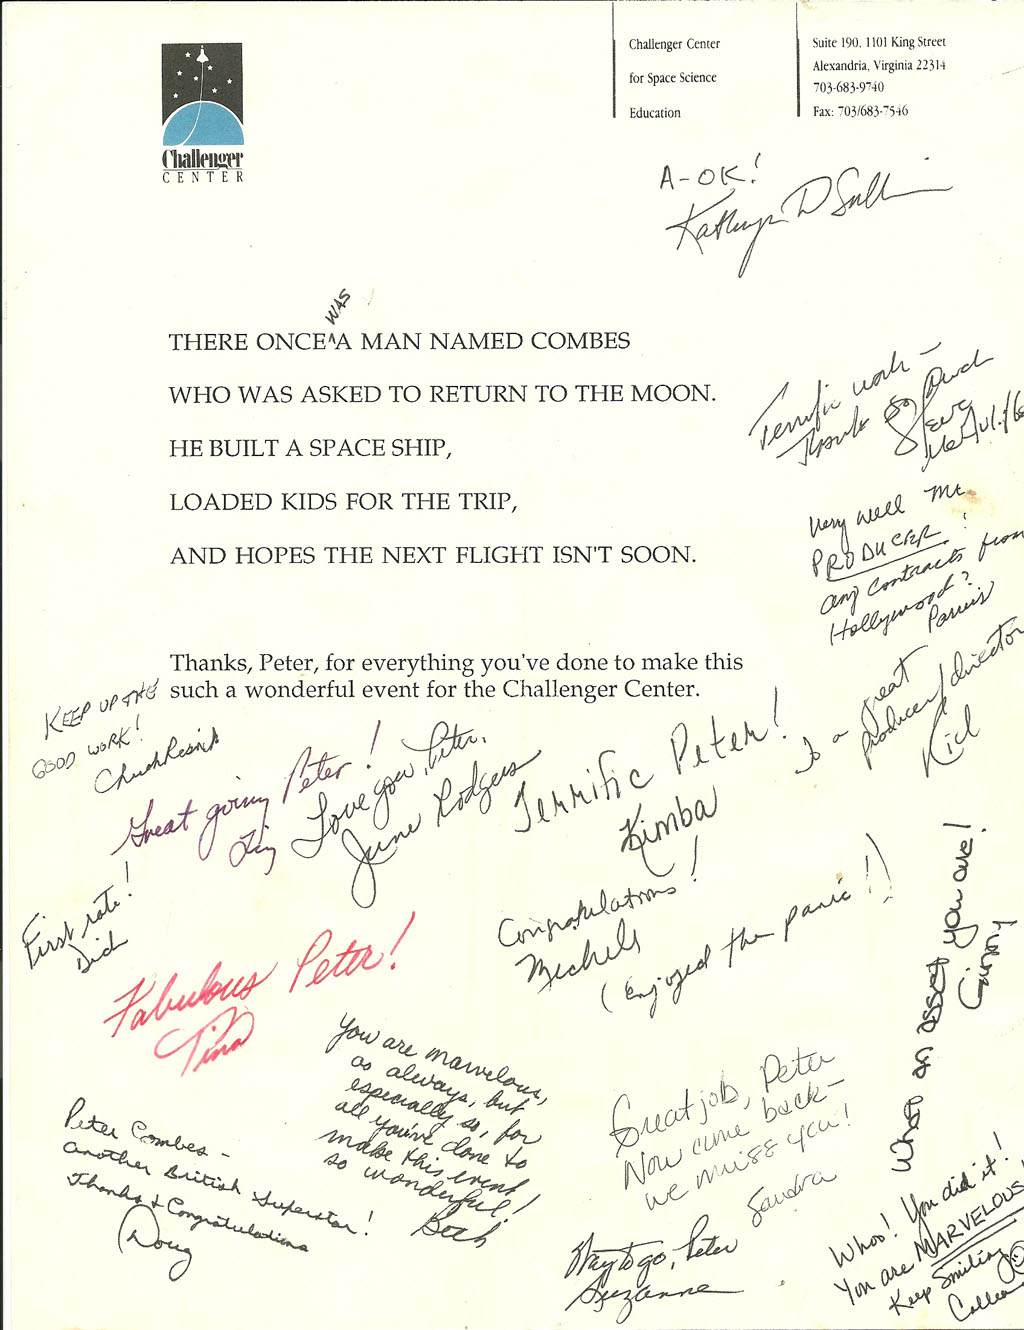 Challenger
CENTER
Challenger Center
for Space Science
Education
Suite 190, 1101 King Street
Alexandria, Virginia 22314
703-683-9740
Fax: 703/683-7546
A-OK!
Kathryn D Sullivan
WAS
THERE ONCE ^ A MAN NAMED COMBES
WHO WAS ASKED TO RETURN TO THE MOON.
HE BUILT A SPACE SHIP,
LOADED KIDS FOR THE TRIP,
AND HOPES THE NEXT FLIGHT ISN'T SOON.
Terrific work –
Thanks so much
Steve
McAuliffe
Very well Mr.
PRODUCER!
any contracts from
Hollywood?
Thanks, Peter, for everything you've done to make this
such a wonderful event for the Challenger Center.
To a great
producer/director
Rick
KEEP UP THE
GOOD WORK!
Chuck Resnik
Great going Peter!
Liz
Love you, Peter,
June Rodgers
Terrific Peter!
Kimba
First rate!
Dick
Congratulations!
Michele
(Enjoyed the panic!!)
What an asset you are!
Ginny!
Fabulous Peter!
Tina
You are marvelous,
as always, but
especially so, for
all you've done to
make this event
so wonderful!
Beth
Great job, Peter
Now come back –
we miss you!
Sandra
Peter Combes –
another British Superstar!
Thanks & Congratulations
Doug
Way to go, Peter
Suzanne
Whoo! You did it!
You are MARVELOUS!
Keep Smiling